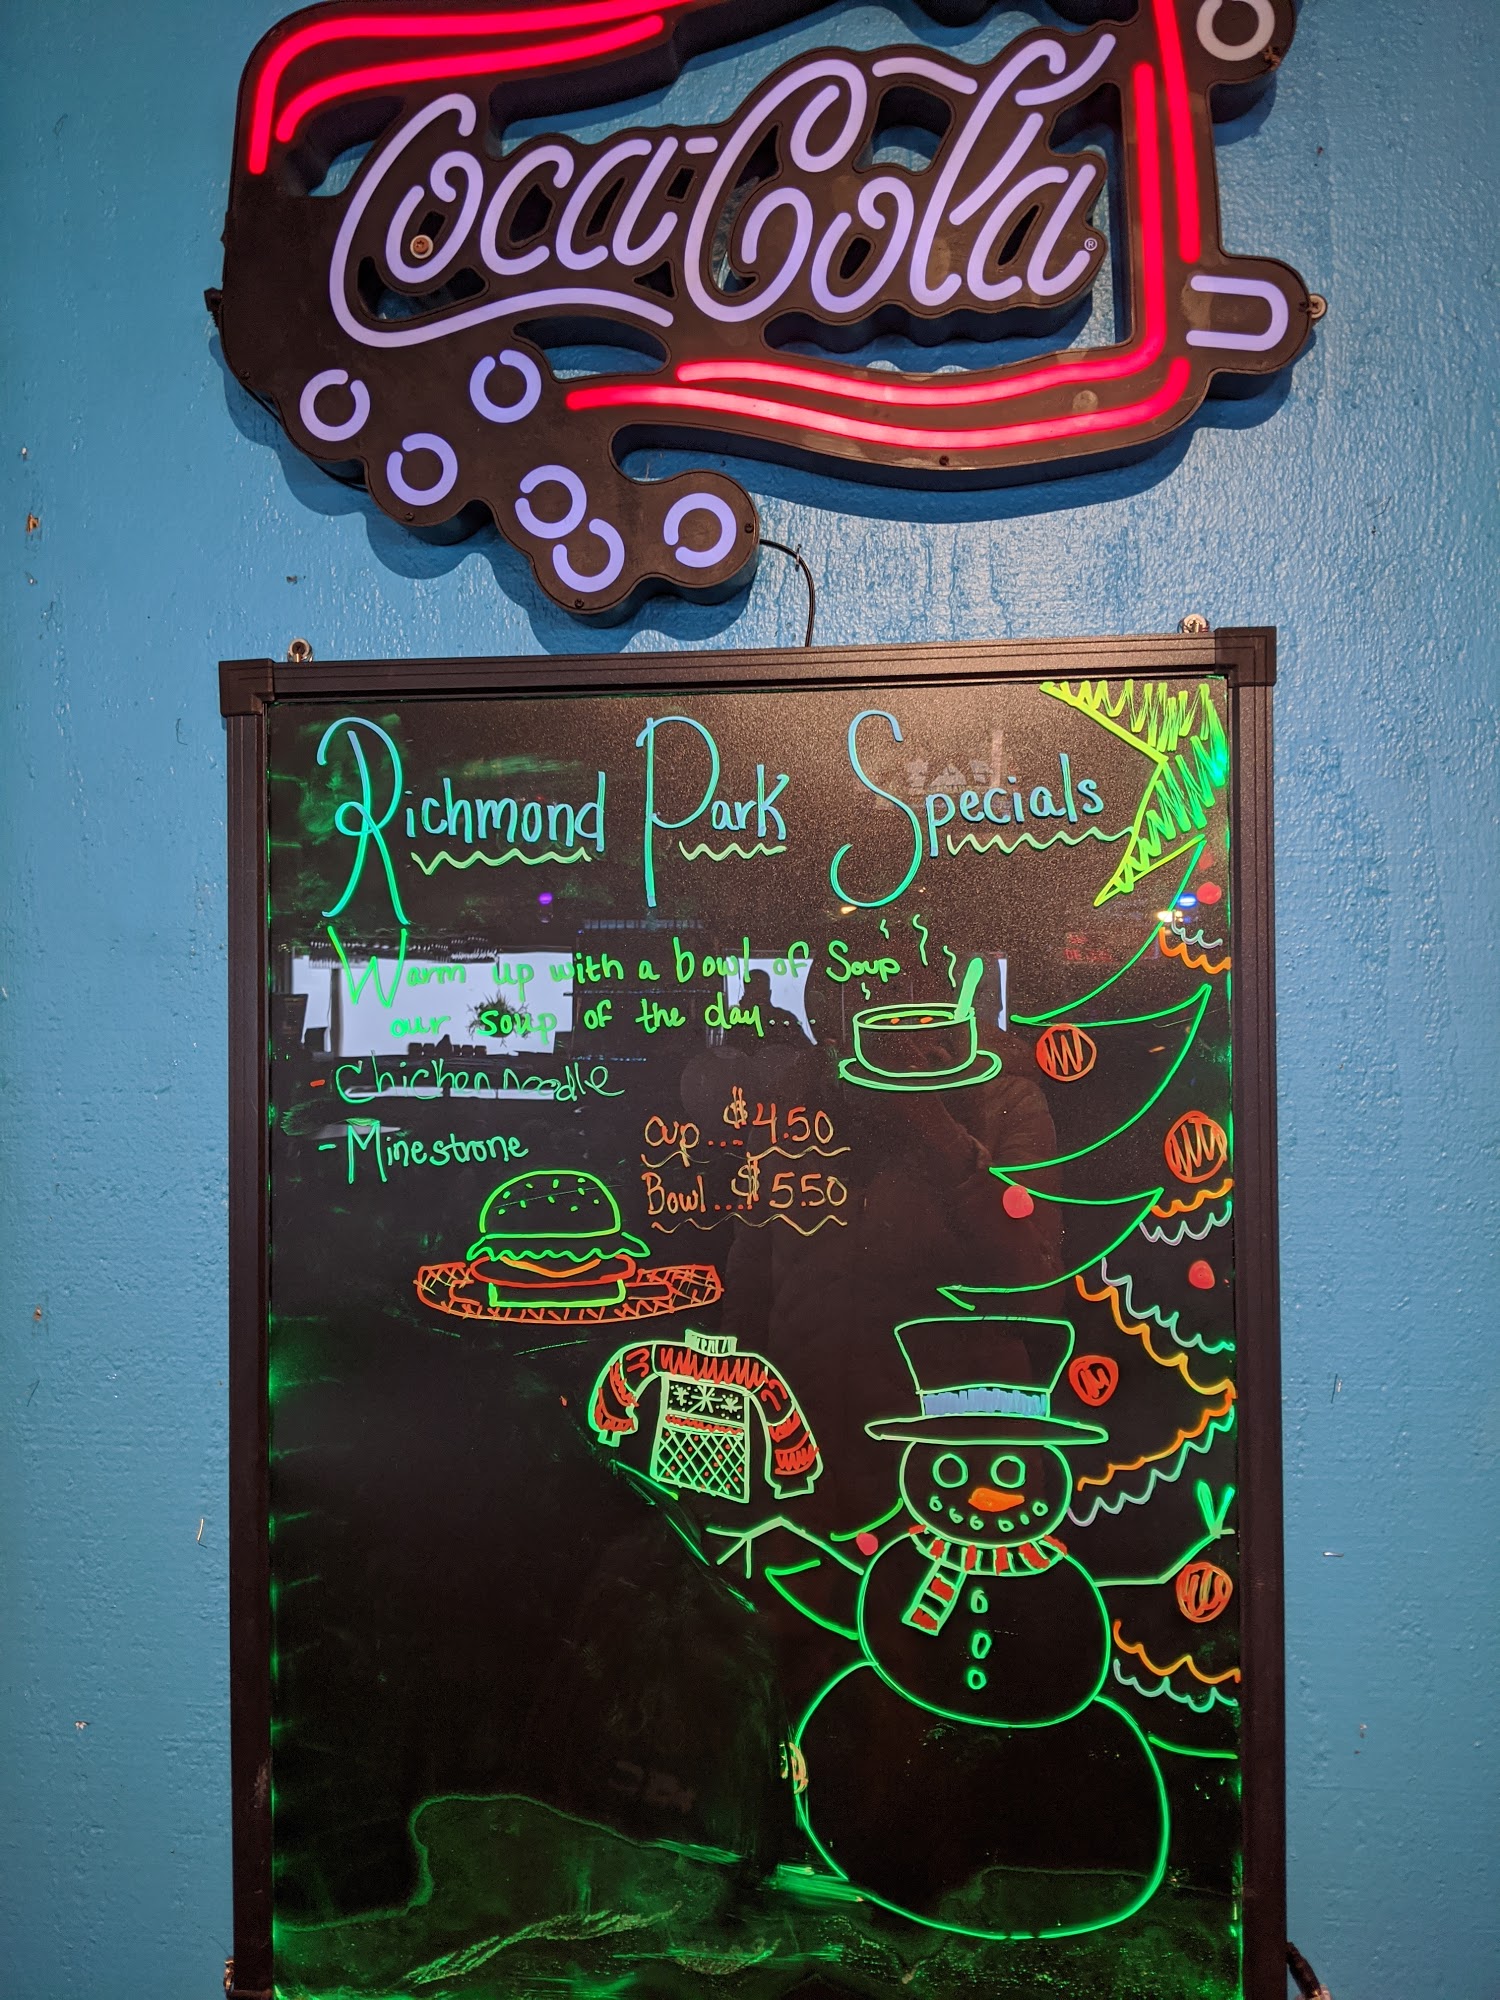 Coca-Cola®
Richmond Park Specials
Warm up with a bowl of Soup
our soup of the day....
- Chicken noodle
- Minestrone
cup...$4.50
Bowl...$5.50